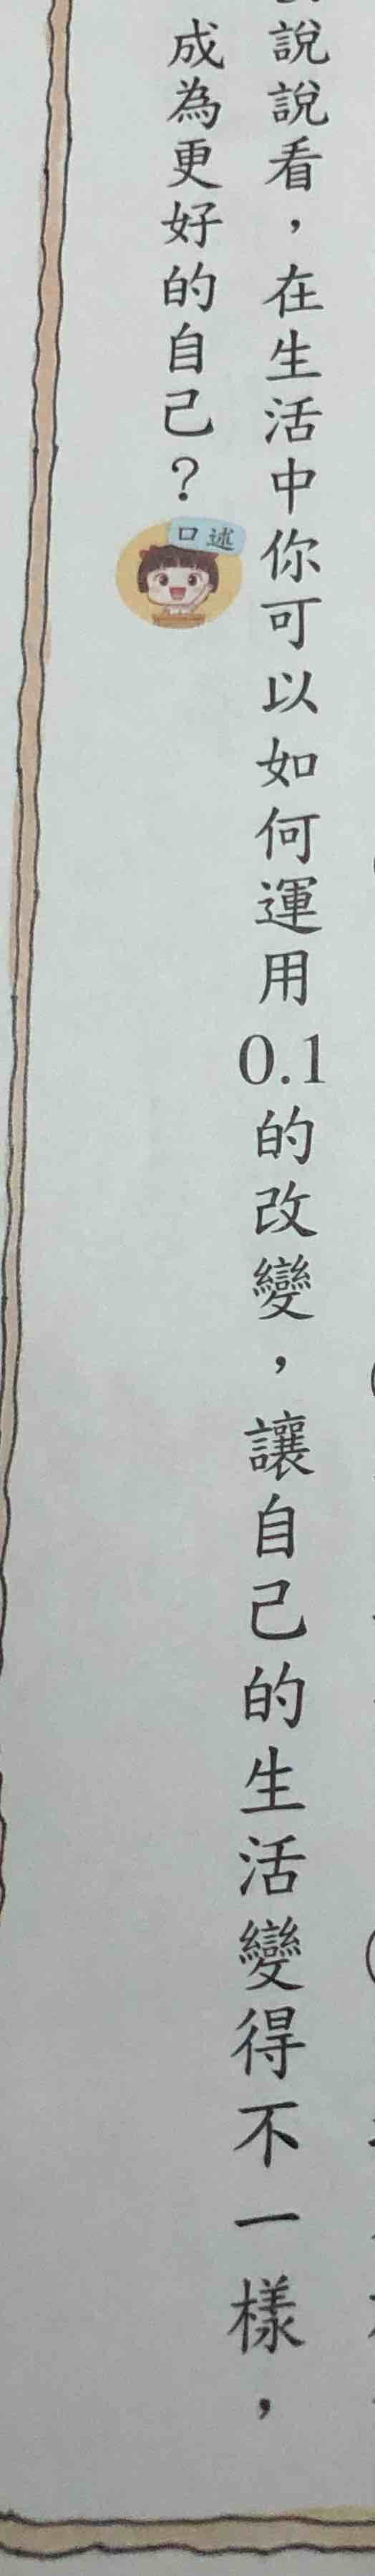 說說看，在生活中你可以如何運用0.1的改變，讓自己的生活變得不一樣，
成為更好的自己？
口述